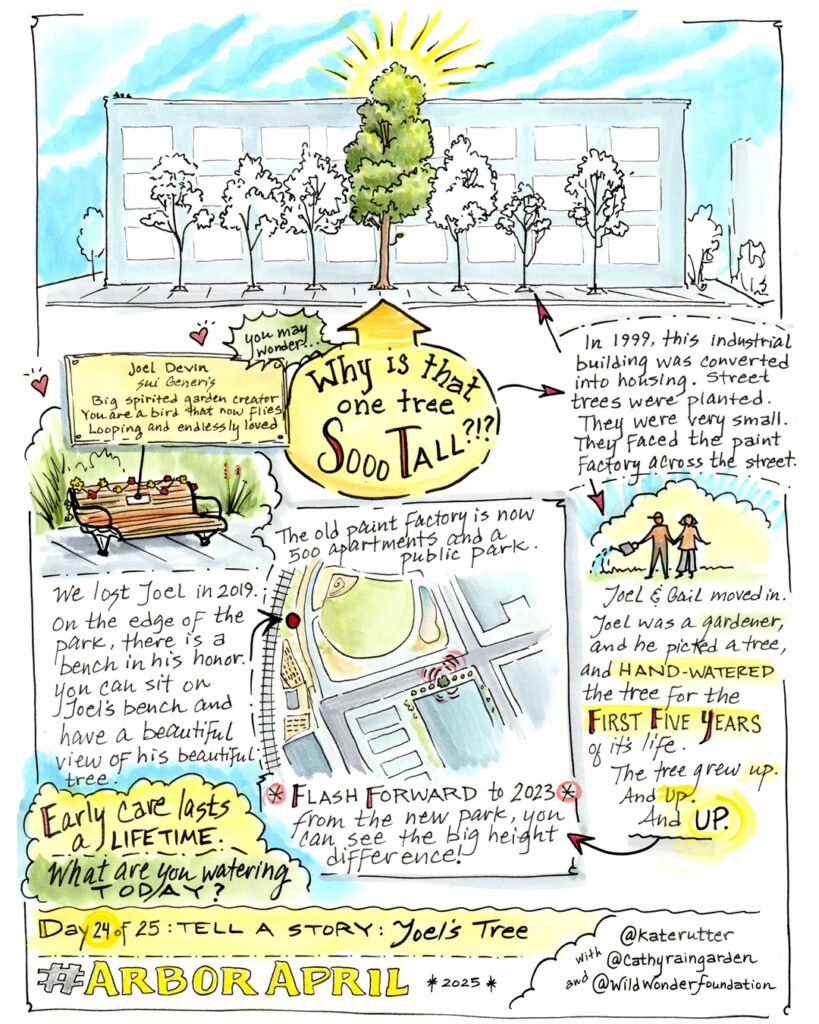 you may
wonder...
Why is that
one tree
Sooo Tall?!?
In 1999, this industrial
building was converted
into housing. Street
trees were planted.
They were very small.
They faced the paint
Factory across the street.
Joel & Gail moved in.
Joel was a gardener,
and he picked a tree,
and HAND-WATERED
the tree for the
FIRST FIVE YEARS
of it's life.
The tree grew up.
And Up.
And UP.
The old paint Factory is now
500 apartments and a
public park.
* FLASH FORWARD to 2023 *
from the new park, you
can see the big height
difference!
Joel Devin
sui Generis
Big spirited garden creator
You are a bird that now flies
Looping and endlessly loved
We lost Joel in 2019.
On the edge of the
park, there is a
bench in his honor.
You can sit on
Joel's bench and
have a beautiful
view of his beautiful
tree.
Early care lasts
a LIFETIME.
What are you watering
TODAY?
Day 24 of 25: TELL A STORY: Joel's Tree
#ARBOR APRIL *2025*
@katerutter
with @cathyraingarden
and @wildwonderfoundation